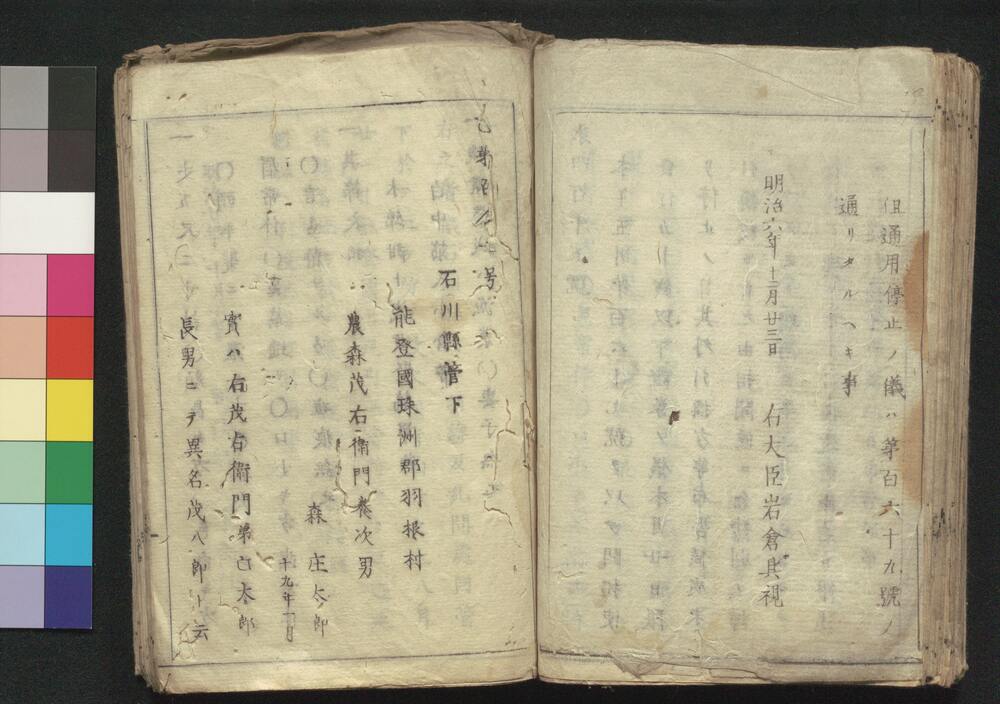 但通用停止ノ儀ハ第百六十九號ノ
通リタルヘキ事
明治六年十二月廿三日 右大臣岩倉具視
号
石川縣管下
能登國珠洲郡羽根村
農森茂右衛門養次男
森庄太郎
十九年一月
實ハ右茂右衛門弟亡太郎
長男ニテ異名茂八郎ト云